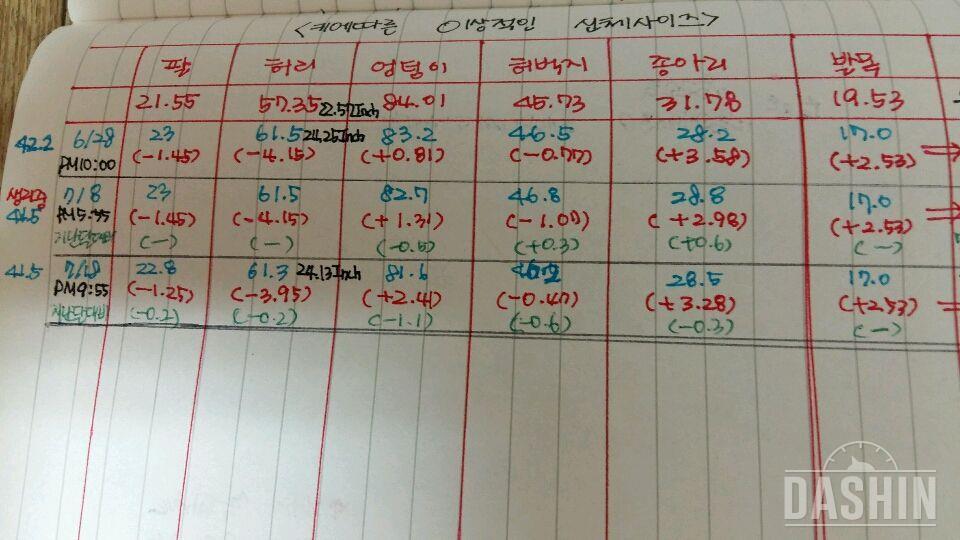 <키에따른 이상적인 신체사이즈>
팔 허리 엉덩이 허벅지 종아리 발목
21.55 57.35 22.57Inch 84.01 45.73 31.78 19.53
42.2 6/28 23 61.5 24.25Inch 83.2 46.5 28.2 17.0
PM10:00 (-1.45) (-4.15) (+0.81) (-0.77) (+3.58) (+2.53) ⇒
생리중 7/8 23 61.5 82.7 46.8 28.8 17.0
41.5 PM5:35 (-1.45) (-4.15) (+1.31) (-1.07) (+2.98) (+2.53) ⇒
지난달대비 (-) (-) (-0.5) (+0.3) (+0.6) (-)
41.5 7/18 22.8 61.3 24.13Inch 81.6 46.2 28.5 17.0
PM9:55 (-1.25) (-3.95) (+2.41) (-0.47) (+3.28) (+2.53)
지난달대비 (-0.2) (-0.2) (-1.1) (-0.6) (-0.3) (-)
DASHIN